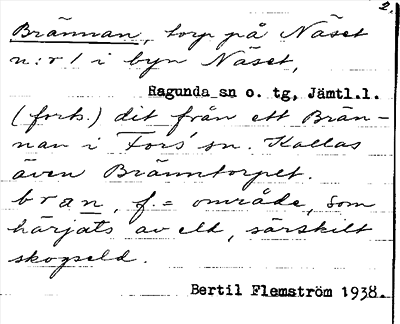 2.
Brännan, torp på Näset
n:r 1 i byn Näset,
Ragunda sn o. tg, Jämtl.l.
(forts.) dit från ett Brän-
nan i Fors' sn. Kallas
även Bränntorpet.
bran, f. = område, som
härjats av eld, särskilt
skogseld.
Bertil Flemström 1938.